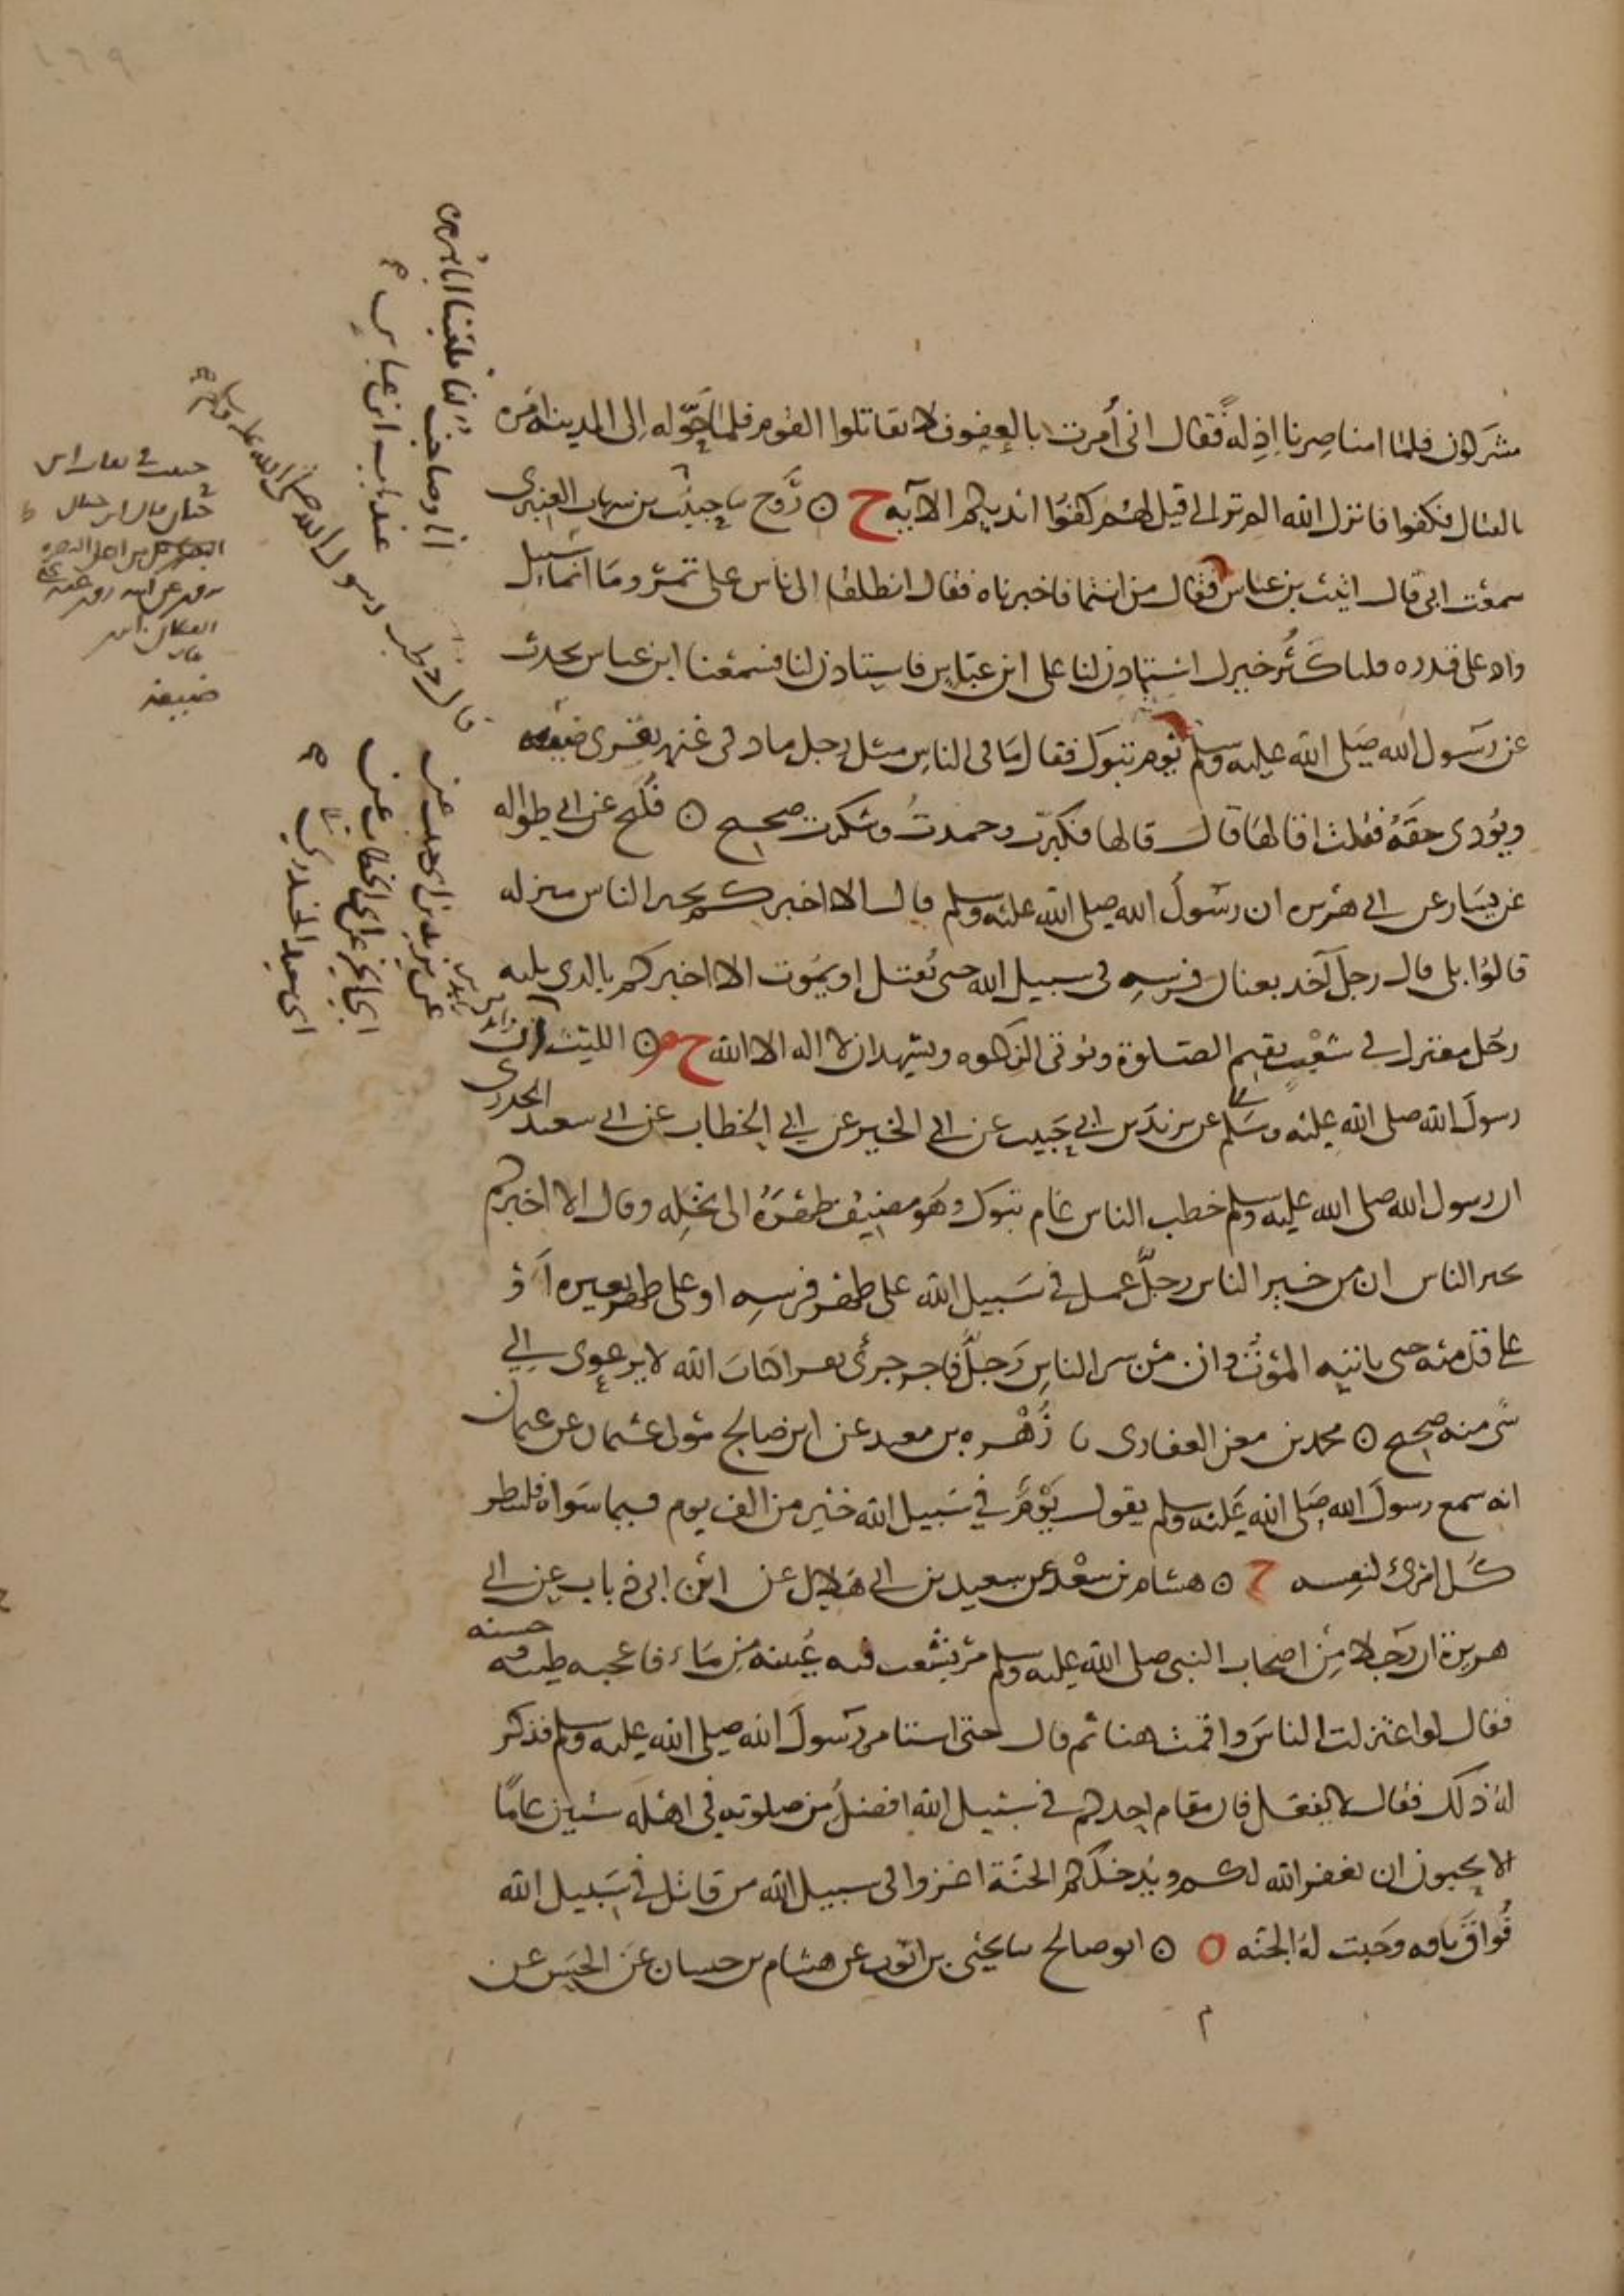 مشركون فلما امنا صرنا اذلة فقال انى أمرت بالعفو فلا تقاتلوا القوم فلما حوّله إلى المدينة امره
بالقتال فكفوا فانزل الله الم تر الى الذين قيل لهم كفوا ايديكم الآيه ح ⊙ رَوح ما حبيب بن شهاب العنبرى
سمعت ابى قال اتيت بن عباس فقال من انتما فاخبرناه فقال انطلقا الى ناس على تمر وماء انما يسيل
واد على قدره قلنا كثُر خيرك استاذن لنا على ابن عباس فاستاذن لنا فسمعنا ابن عباس يحدث
عن رسول الله صلى الله عليه وسلم يوم تبوك فقال ما فى الناس مثل رجل باد فى غنمه يقرى ضيفه
ويؤدى حقه فقلت اقالها قال قالها فكبرت وحمدت وشكرت صحيح ⊙ فليح عن ابى طواله
عن يسار عن ابى هريره ان رسول الله صلى الله عليه وسلم قال الا اخبركم بخير الناس منزله
قالوا بلى قال رجل آخذ بعنان فرسه فى سبيل الله حتى يُقتل او يموت الا اخبركم بالذى يليه
رجل معتزل فى شعب يقيم الصلوة ويؤتى الزكوه ويشهد ان لا اله الا الله ح م ⊙ الليث ان
رسول الله صلى الله عليه وسلم عن يزيد بن ابى حبيب عن ابى الخير عن ابى الخطاب عن ابى سعيد الخدرى
ان رسول الله صلى الله عليه وسلم خطب الناس عام تبوك وهو مضيف ظهره الى نخله وقال الا اخبركم
بخير الناس ان من خير الناس رجلٌ عمل فى سبيل الله على ظهر فرسه او على ظهر بعيره أو
على قدميه حتى ياتيه الموت وان من شر الناس رجلٌ فاجر جرئ يقرا كتاب الله لا يرعوى إلى
شئ منه صحيح ⊙ محمد بن معن الغفارى ما زُهْره بن معبد عن ابن صالح مولى عثمان عن عثمان
انه سمع رسول الله صلى الله عليه وسلم يقول يومٌ في سبيل الله خير من الف يوم فيما سواه فلينظر
كل امرئ لنفسه ح ⊙ هشام بن سعد عن سعيد بن ابى هلال عن ابن ابى ذباب عن ابى
هريرة ان رجلا من اصحاب النبى صلى الله عليه وسلم مر بشعب فيه عيينة من ماء فاعجبه طيبه حسنه
فقال لو اعتزلت الناس واقمت هنا ثم قال حتى استامر رسول الله صلى الله عليه وسلم فذكر
له ذلك فقال لا تفعل فان مقام احدكم فى سبيل الله افضل من صلوته فى اهله ستين عامًا
الا تحبون ان يغفر الله لكم ويدخلكم الجنة اغزوا فى سبيل الله من قاتل فى سبيل الله
فُواق ناقه وجبت له الجنه ⊙ ⊙ ابو صالح ما يحيى بن ايوب عن هشام بن حسان عن الحسن عن
انا وصاحب لنا فلقينا ابا هريره
عند باب ابن عباس
قال خطب رسول الله صلى الله عليه وسلم
عن يزيد بن ابى حبيب عن
ابى الخير عن ابى الخطاب عن
ابى سعيد الخدرى
ضعيف